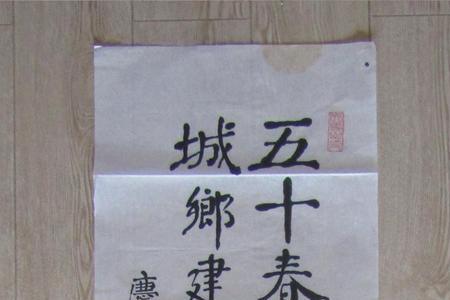 五十春
城鄉建
慶